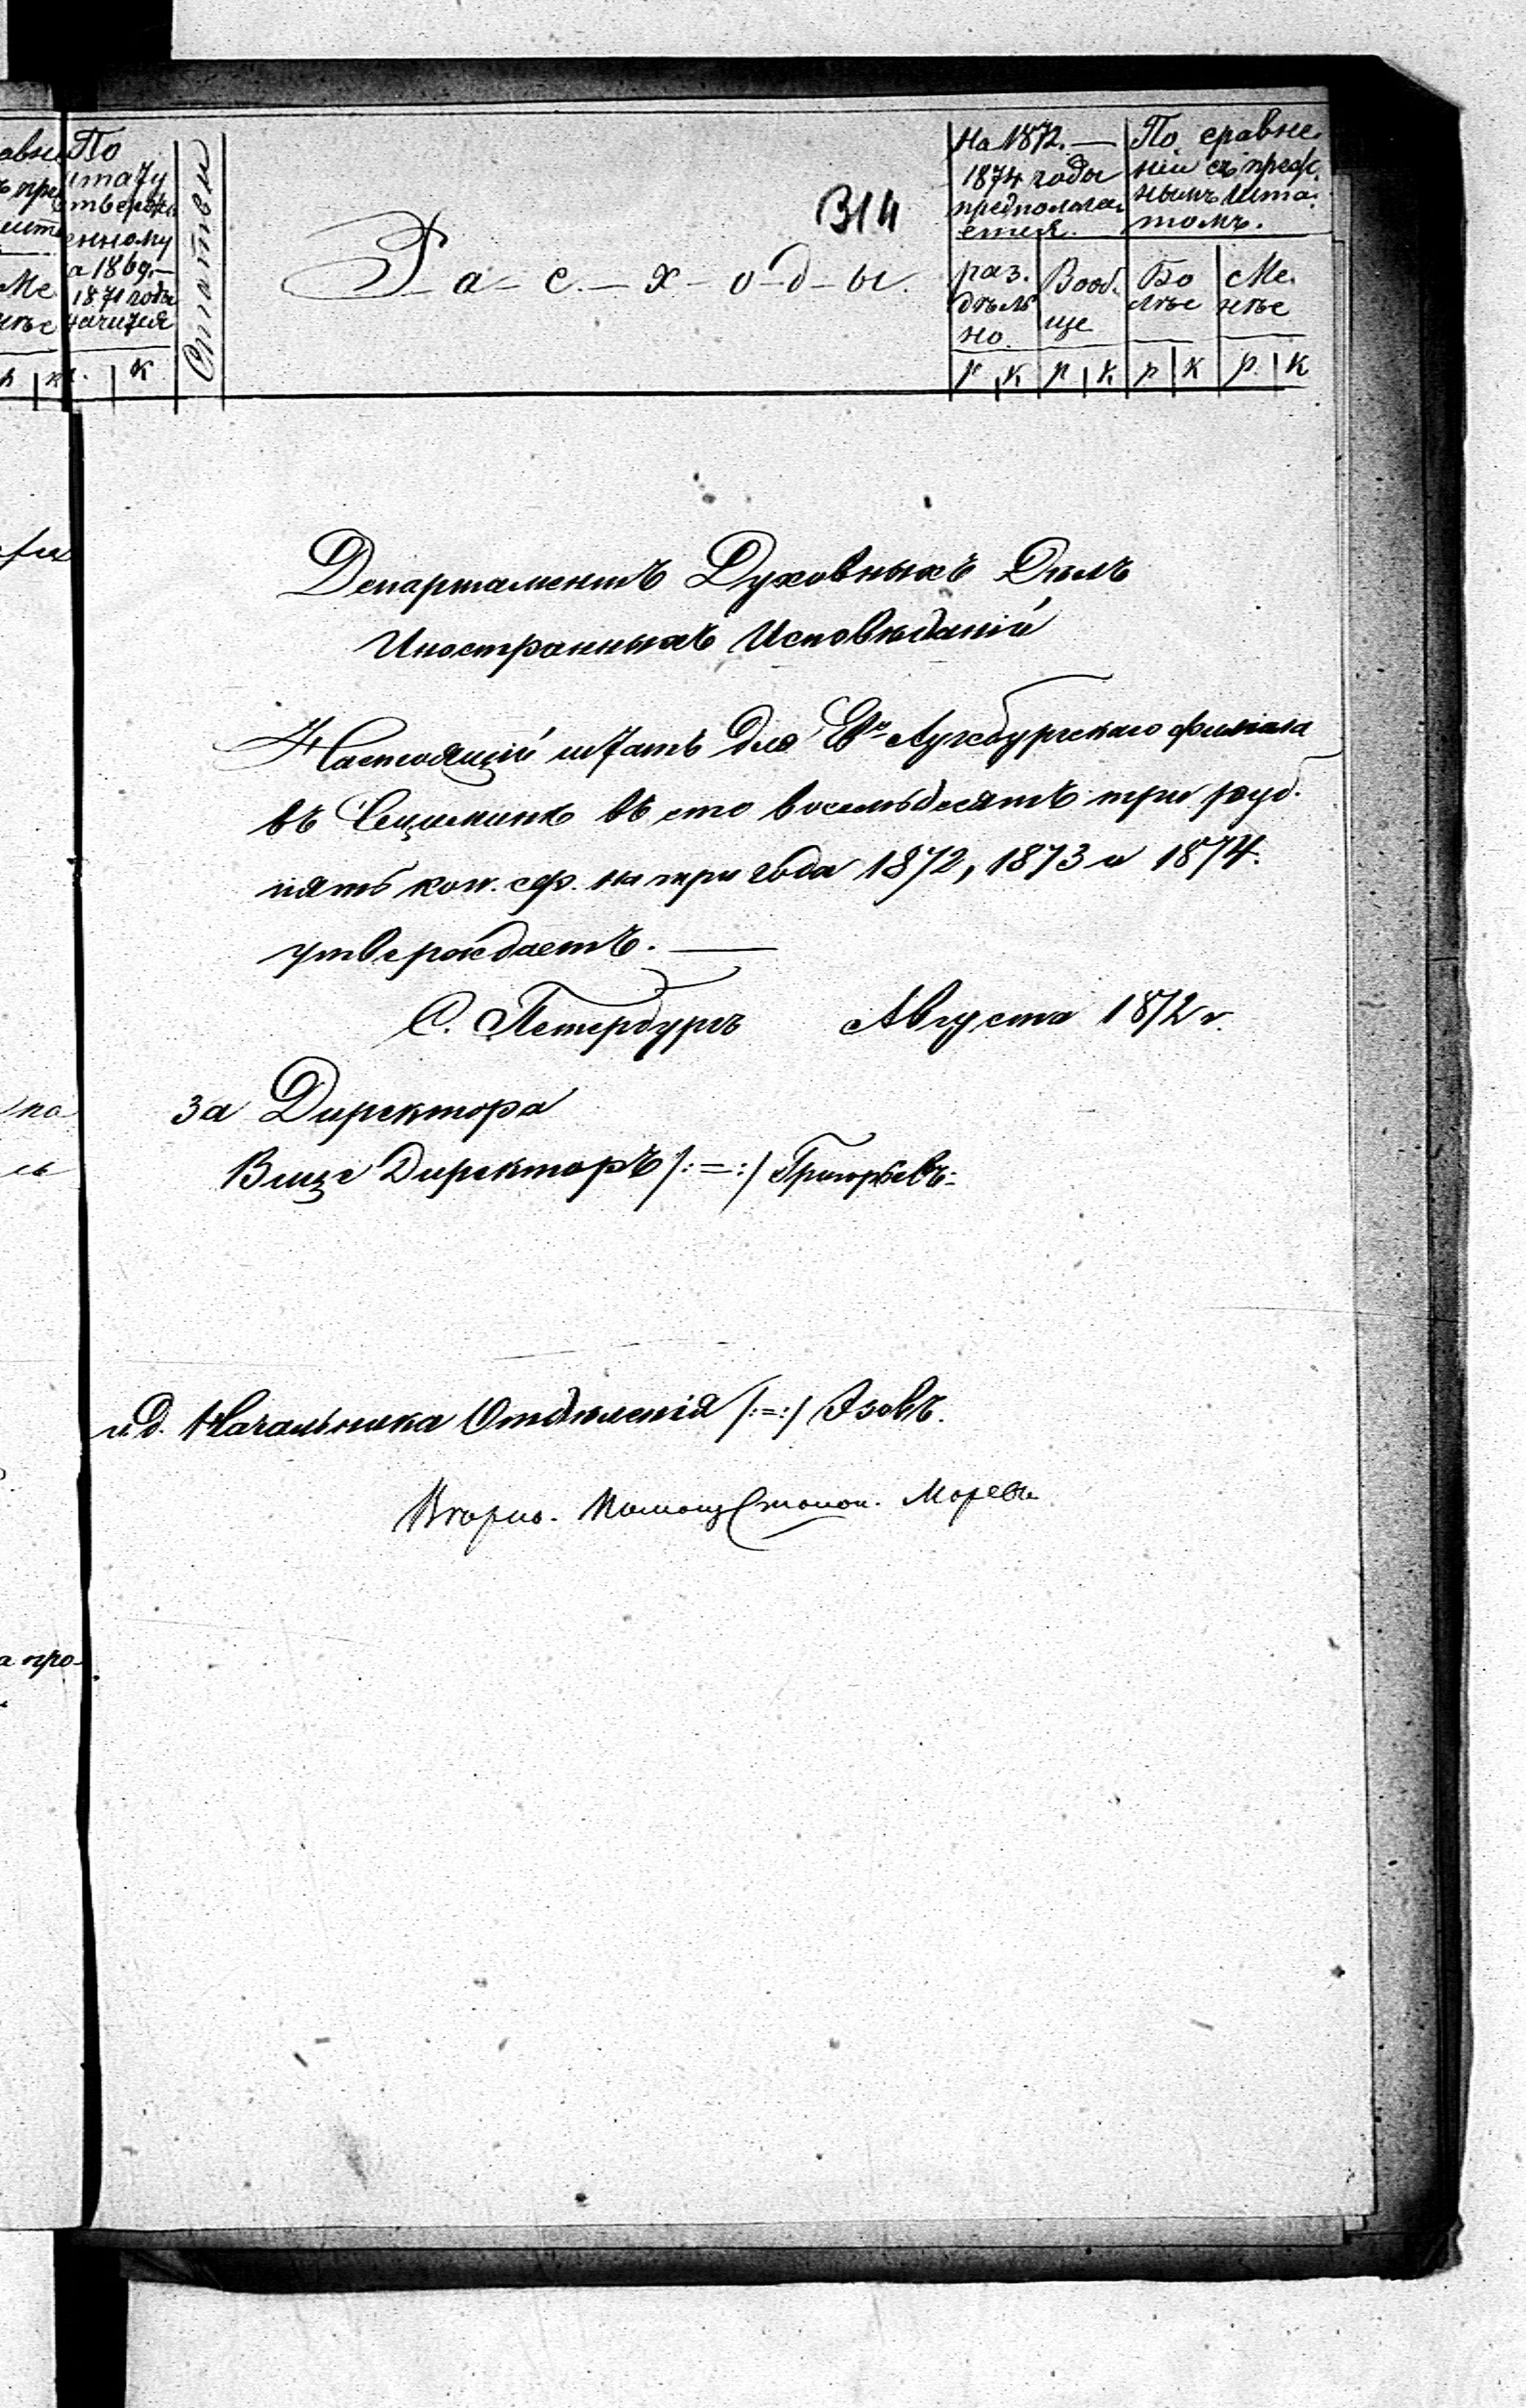 314
По
штату
утвержд
енному
на 1869.—
1871 годы
значится
к
Статьи
Р-а-с-х-о-д-ы.
На 1872.—
1874 годы
предполага-
ется.
По сравне-
нiи съ преж.
нымъ шта-
томъ.
раз.
дѣль
но.
Вооб.
ще
Бо
лѣе
Ме.
нѣе
р к р к р к р. к
Департаментъ Духовныхъ Дѣлъ
Иностранныхъ Исповѣданій
Настоящій штатъ для Ев. Аугсбургскаго филіала
въ въ сто восемьдесятъ три руб.
пять коп. сер. на три года 1872, 1873 и 1874.
утверждаетъ. —
С. Петербургъ Августа 1872 г.
За Директора
Вице Директоръ /:=:/ Григорьевъ.
и. д. Начальника Отдѣленія /:=:/ Эзовъ.